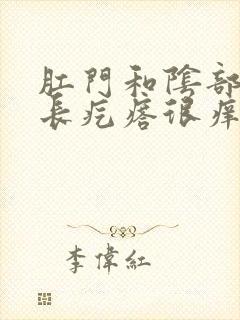 肛門和陰部
長疙瘩很痒
李偉紅